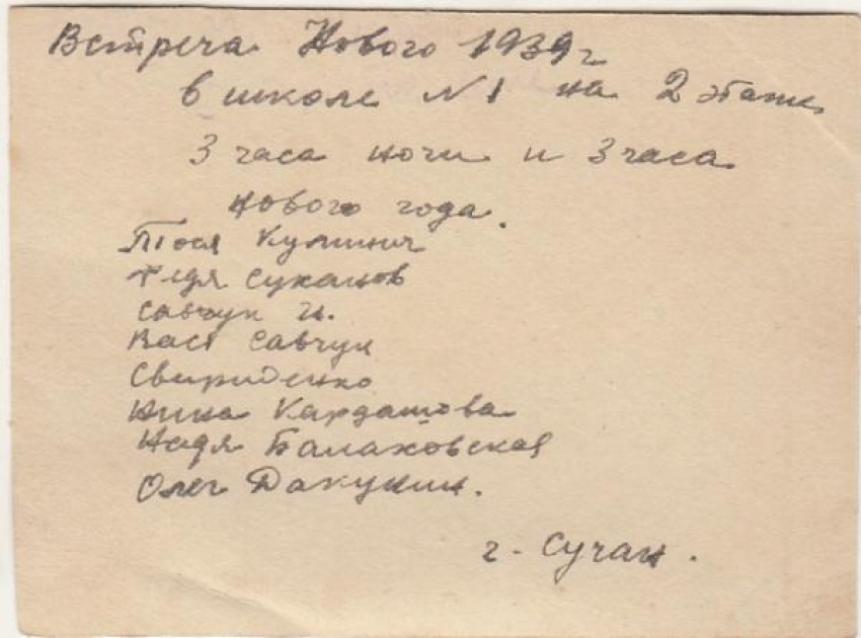 Встреча Нового 1939 г
в школе №1 на 2 этаже
3 часа ночи и 3 часа
нового года.
Тося Куминич
Федя Суханов
Савчук И.
Вася Савчук
Свириденко
Нина Кардашова
Надя Балаховская
Олег Дакукин.
г. Сучан.